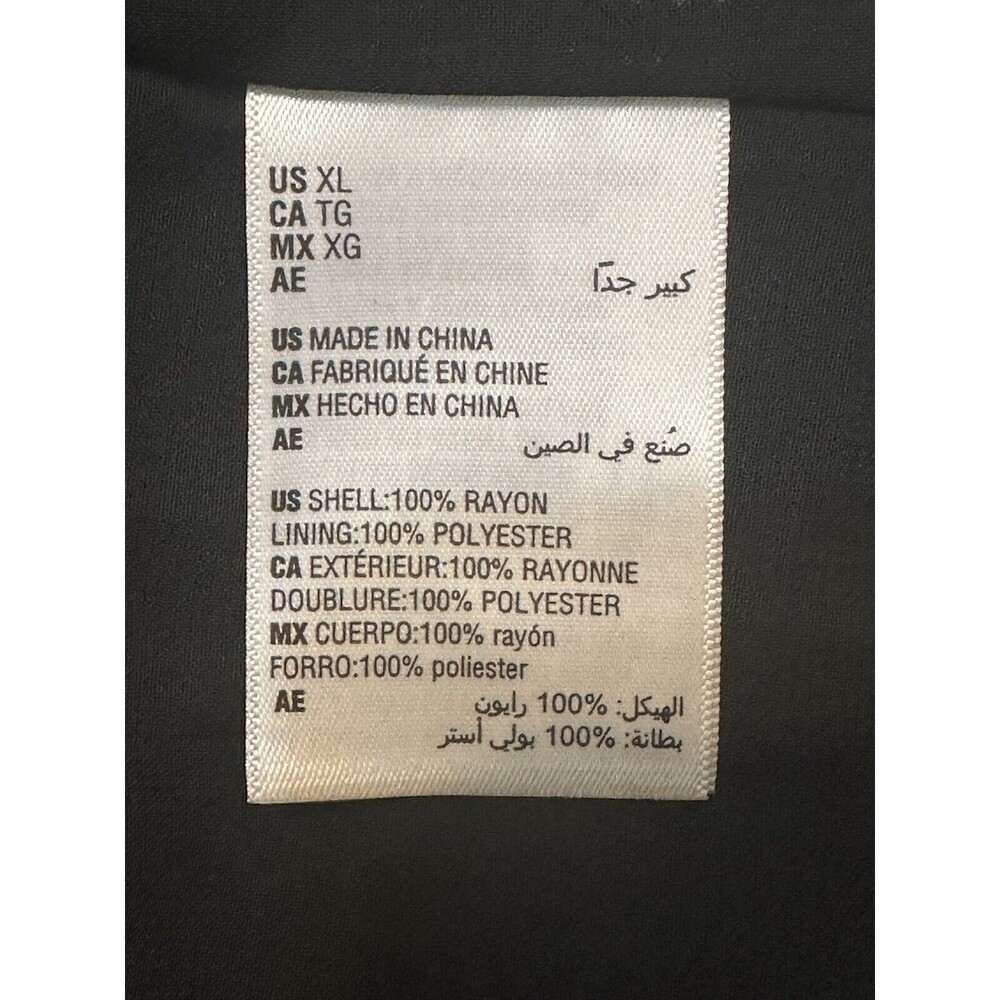 US XL
CA TG
MX XG
AE كبير جدًا
US MADE IN CHINA
CA FABRIQUÉ EN CHINE
MX HECHO EN CHINA
AE صُنع في الصين
US SHELL:100% RAYON
LINING:100% POLYESTER
CA EXTÉRIEUR:100% RAYONNE
DOUBLURE:100% POLYESTER
MX CUERPO:100% rayón
FORRO:100% poliester
AE الهيكل: 100% رايون
بطانة: 100% بولي أستر